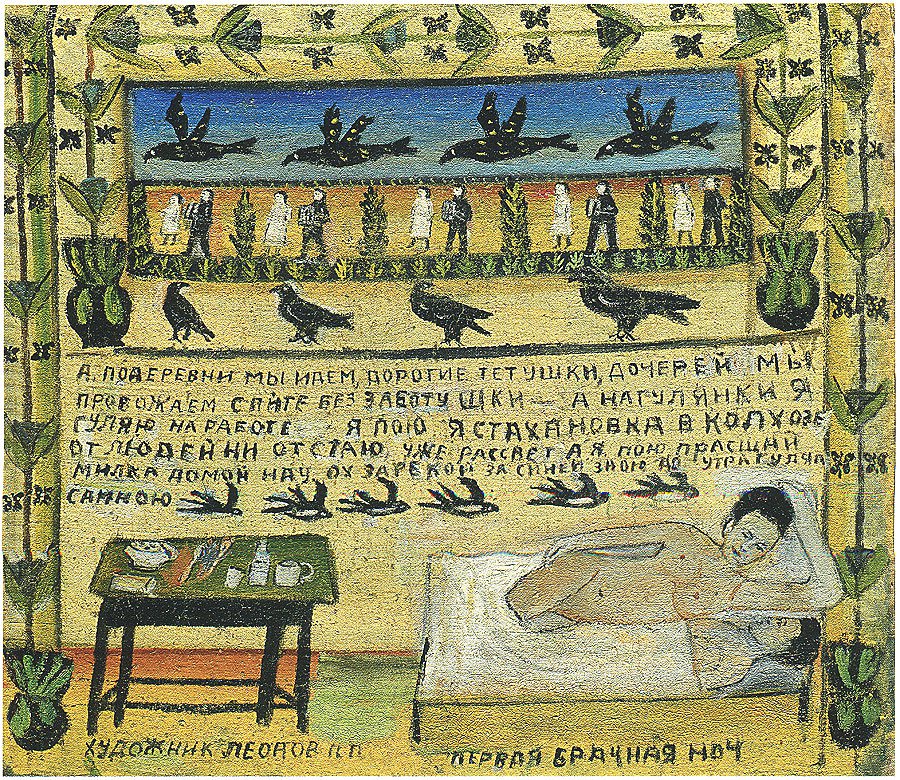 А, ПОДЕРЕВНИ МЫ ИДЕМ, ДОРОГИЕ ТЕТУШКИ, ДОЧЕРЕЙ МЫ
ПРОВОЖАЕМ СПИТЕ БЕЗ ЗАБОТУШКИ — А НАГУЛЯНКИ Я
ГУЛЯЮ НА РАБОТЕ — Я ПОЮ. Я СТАХАНОВКА В КОЛХОЗЕ
ОТ ЛЮДЕЙ НИ ОТСТАЮ. УЖЕ РАССВЕТ А Я ПОЮ ПРАСЩАЙ
МИЛКА ДОМОЙ ИДУ. ОХ ЗАРЕКОЙ ЗА СИНЕЙ УТРА ГУЛЯЛА
САМНОЮ
ХУДОЖНИК ЛЕОНОВ П.П.
ПЕРВАЯ БРАЧНАЯ НОЧ